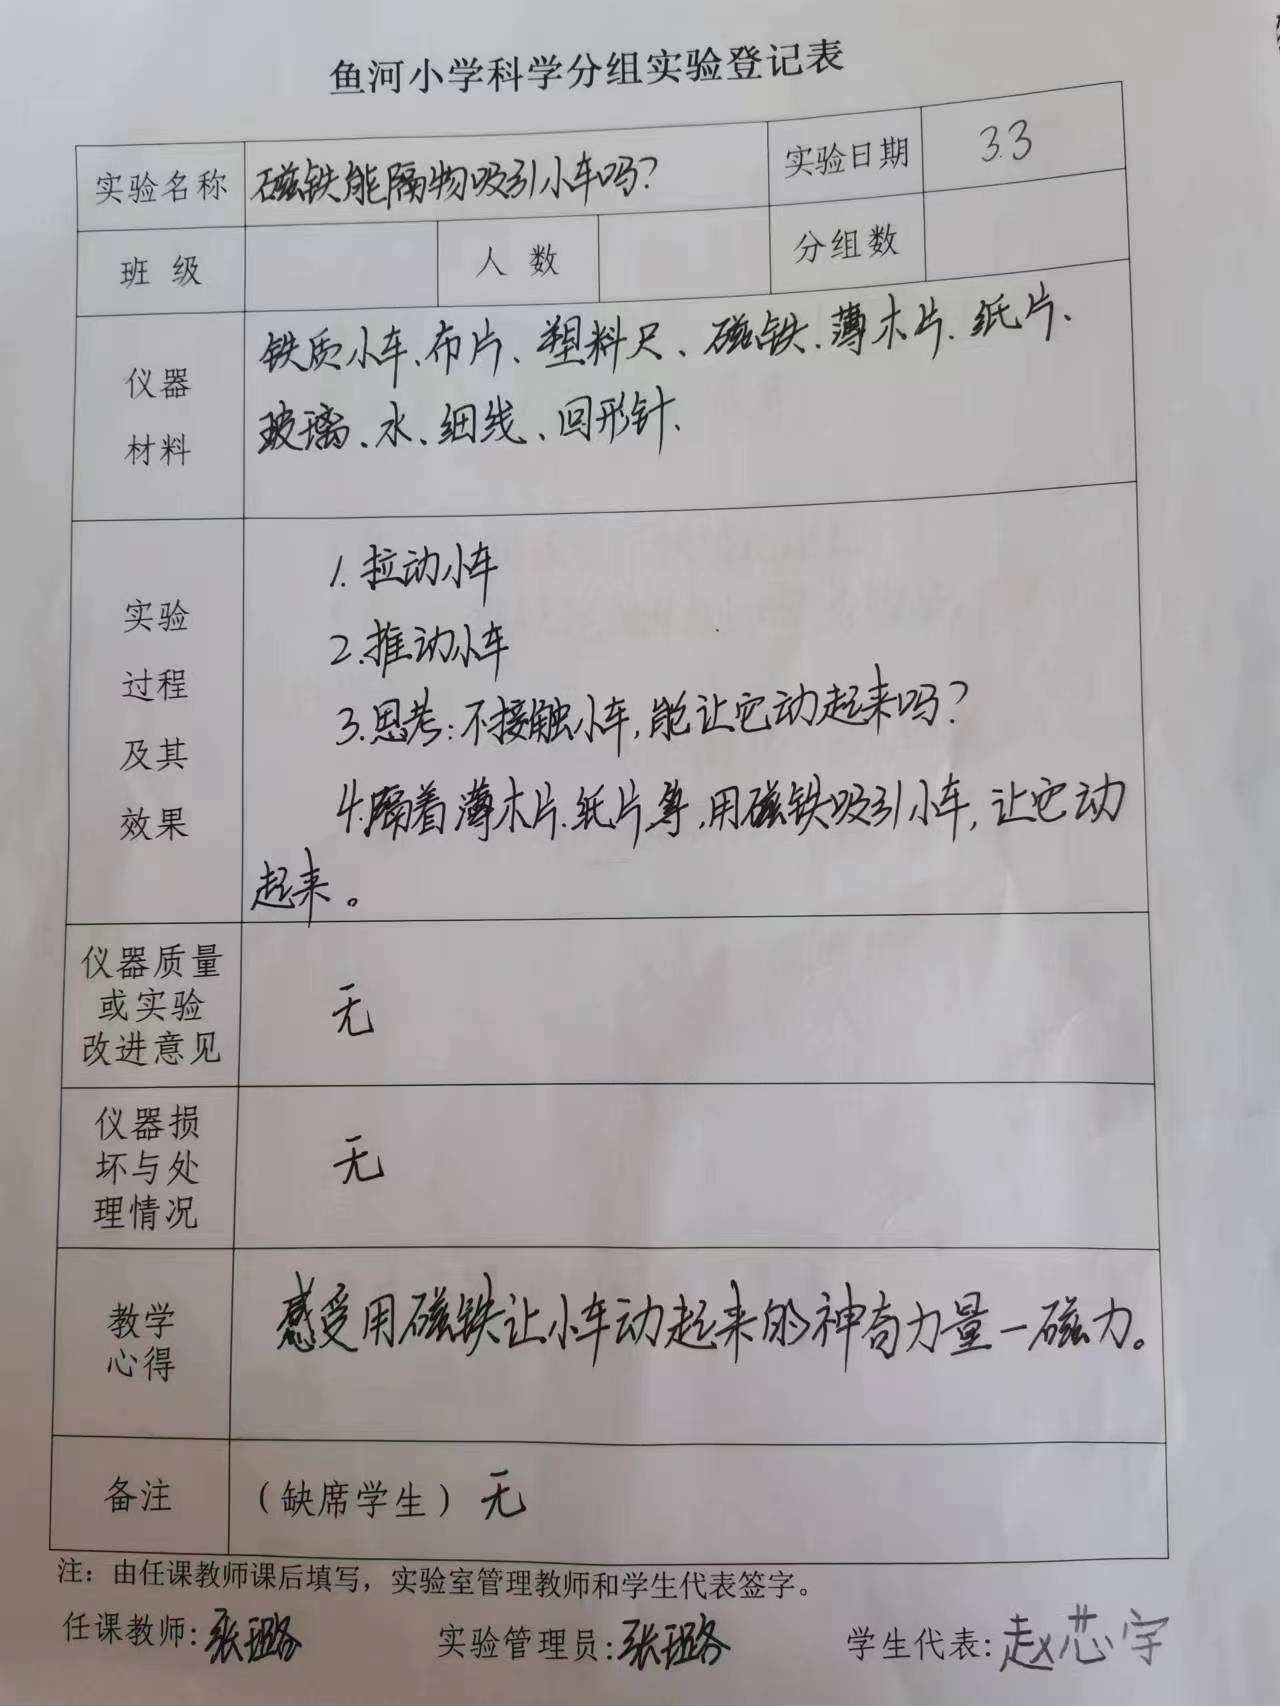 鱼河小学科学分组实验登记表
实验名称 磁铁能隔物吸引小车吗? 实验日期 3.3
班 级 人 数 分组数
仪器
材料
铁质小车、布片、塑料尺、磁铁、薄木片、纸片、
玻璃、水、细线、回形针、
实验
过程
及其
效果
1. 拉动小车
2. 推动小车
3. 思考: 不接触小车, 能让它动起来吗?
4. 隔着薄木片、纸片等, 用磁铁吸引小车, 让它动
起来。
仪器质量
或实验
改进意见
无
仪器损
坏与处
理情况
无
教学
心得
感受用磁铁让小车动起来的神奇力量—磁力。
备注
（缺席学生）无
注：由任课教师课后填写，实验室管理教师和学生代表签字。
任课教师: 张璐 实验管理员: 张璐 学生代表: 赵芯宇